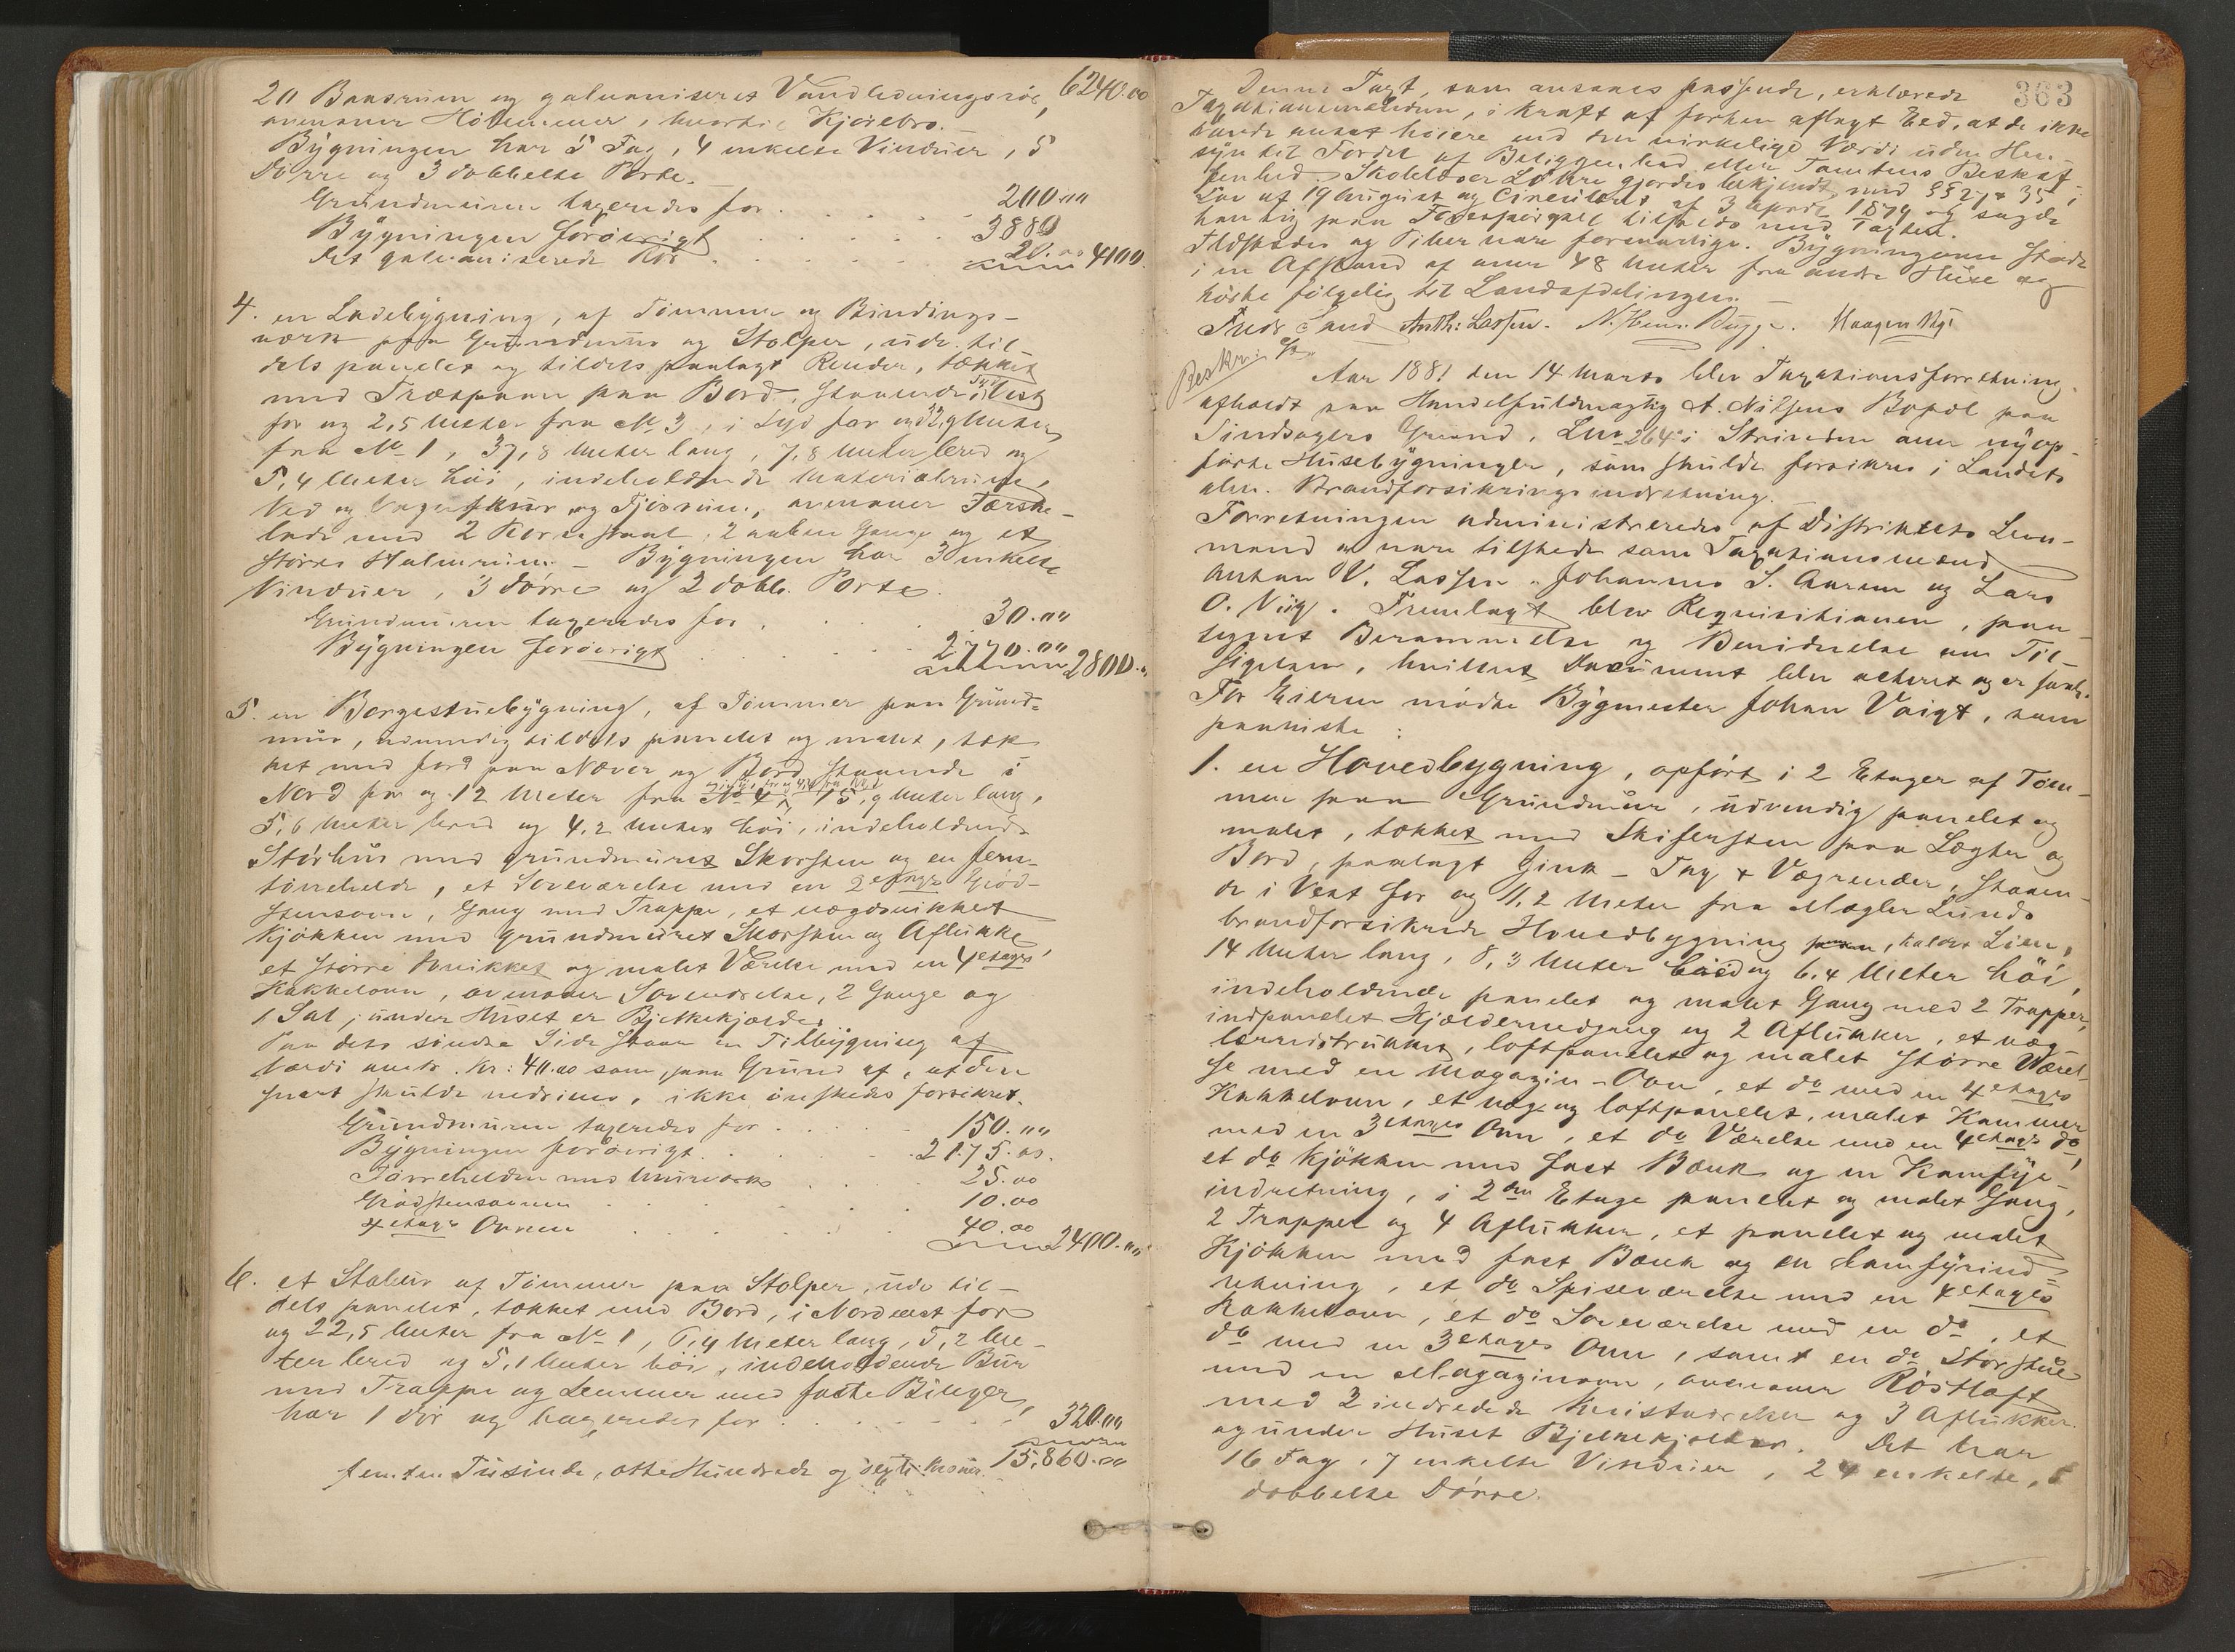 20 Baasrum og galvaniseret Vandledningsrör, 6240.00
ovenover Hölemmer, hvortil Kjörebro.
Bygningen har 5 Fag, 4 enkelte Vinduer, 5
Dörre og 3 dobbelte Porte.
Grundmuren taxeredes for . . . . 200 "
Bygningen foröverigt . . . . 3880
det galvaniserede Rör . . . . 20.00 4100.
4. en Ladebygning, af Tömmer og Bindings-
værk paa Grundmur og Stolper, udv. til-
dels panelet og tildels paalagt Render, tækket
med Træspaan paa Bord, staaende i Vest
for og 2,5 Meter fra No 3, i Syd for og 32,9 Meter
fra No 1, 37,8 Meter lang, 7,8 Meter bred og
5,4 Meter höi, indeholdende Materialrum,
Ved og Vognskur og Tjörrum, ovenover Tærske-
lade med 2 Kornstaal, 2 aabne Gange og et
större Halmrum. - Bygningen har 3 enkelte
Vinduer, 3 Dörre og 2 dobb. Porte.
Grundmuren taxeredes for . . . 30."
Bygningen foröverigt . . . 2770."" 2800."
5. en Borgestuebygning, af Tömmer paa Grund-
mur, udvendig tildels panelet og malet, tæk-
ket med Jord paa Næver og Bord, staaende i
Nord for og 12 Meter fra No 4, 15,9 Meter lang,
5,6 Meter bred og 4,2 Meter höi, indeholdende
Störhus med grundmuret Skorsten og en Jern-
törrehelde, et Soveværelse med en 2 etages Gröd-
stensovn, Gang med Trappe, et
Kjökken med grundmuret Skorsten og Aflukke,
et större og malet Værelse med en 4 etages
Kakkelovn, ovenover Soveværelse, 2 Gange og
1 Sal; under Huset er Bjelkekjælder.
Paa dets söndre Side staar en Tilbygning af
Værdi omtr. Kr: 40.00 som, paa Grund af, at den
snart skulde nedrives, ikke önskedes forsikret.
Grundmuren taxeredes for . . . . 150.""
Bygningen foröverigt . . . . 2175.00.
Törrehelden med Murværk . . . . 25.00
Grödstensovnen . . . . 10.00
4 etages Ovnen . . . . 40.00 2400.""
6. et Stabur af Tömmer paa Stolper, udv. til-
dels panelet, tækket med Bord, i Nordvest for
og 22,5 Meter fra No 1, 6,4 Meter lang, 5,2 Me-
ter bred og 5,1 Meter höi, indeholdende Bur
med Trappe og Lemmer med faste Binger,
har 1 Dör og taxeredes for . . . . 320.""
femten Tusinde, otte Hundrede og Kroner. 15,860.00
363
Denne Taxt, som ansaaes passende, erklærede
Taxationsmændene, i Kraft af forhen aflagt Eed, at de ikke
havde ansat höiere end den virkelige Værdi uden Hen-
syn til Fordel af Beliggenhed eller Tomtens Beskaf-
fenhed. gjordes bekjendt med §§ 27 & 35 i
Lov af 19 August og Circulære af 3 April 1879 og sagde
han sig paa Forespörgsel tilfreds med Taxten.
Ildsteder og Piber vare forsvarlige. Bygningerne stode
i en Afstand af over 48 Meter fra andre Huse og
hörte fölgelig til Landafdelingen.
Fredr Lund Anth: Lassen. N. Henr. Bugge. Haagen Vigt
Beskr:
Aar 1881 den 14 Marts blev Taxationsforretning
afholdt paa Handelsfuldmægtig A. Nilsens Bopæl paa
Grund, Lnr 264 i Strinden over nyop-
förte Husebygninger, som skulde forsikres i Landets
alm. Brandforsikringsindretning.
Forretningen administreredes af Distriktets Lens-
mand og vare tilstede som Taxationsmænd
Anton V. Lassen, Johannes S. Aarem og Lars
O. Viig. Fremlagt blev Requisitionen, paa-
tegnet Berammelse og Bevidnelse om Til-
sigelsen, hvilket Document blev acteret og er saal.
For Eieren mödte Bygmester Johan Voigt, som
paaviste:
1. en Hovedbygning, opfört i 2 Etager af Töm-
mer paa Grundmur, udvendig panelet og
malet, tækket med Skifersten paa Lægter og
Bord, paalagt Zink-Tag & Vægrender, staaen-
de i Vest for og 11,2 Meter fra Mægler Lunds
brandforsikrede Hovedbygning paa, kaldet Lien,
14 Meter lang, 8,3 Meter bred og 6,4 Meter höi,
indeholdende panelet og malet Gang med 2 Trapper,
indpanelet Kjældernedgang og 2 Aflukker, et væg-
lærredstrukket, loftpanelet og malet större Værel-
se med en Magazin-Ovn, et do med en 4 etages
Kakkelovn, et væg og loftpanelet, malet Kammer
med en 3 etages Ovn, et do Værelse med en 4 etags do,
et do Kjökken med fast Bænk og en Komfyr-
indretning, i 2den Etage panelet og malet Gang,
2 Trapper og 4 Aflukker, et panelet og malet
Kjökken med fast Bænk og en Komfyrind-
retning, et do Spiseværelse med en 4 etages
Kakkelovn, et do Soveværelse med en do, et
do med en 3 etages Ovn, samt en do Storstue
med en Magazinovn, ovenover Röstloft
med 2 indredede Kvistværelser og 3 Aflukker.
og under Huset Bjelkekjelder. Det har
16 Fag, 7 enkelte Vinduer, 24 enkelte, 5
dobbelte Dörre.